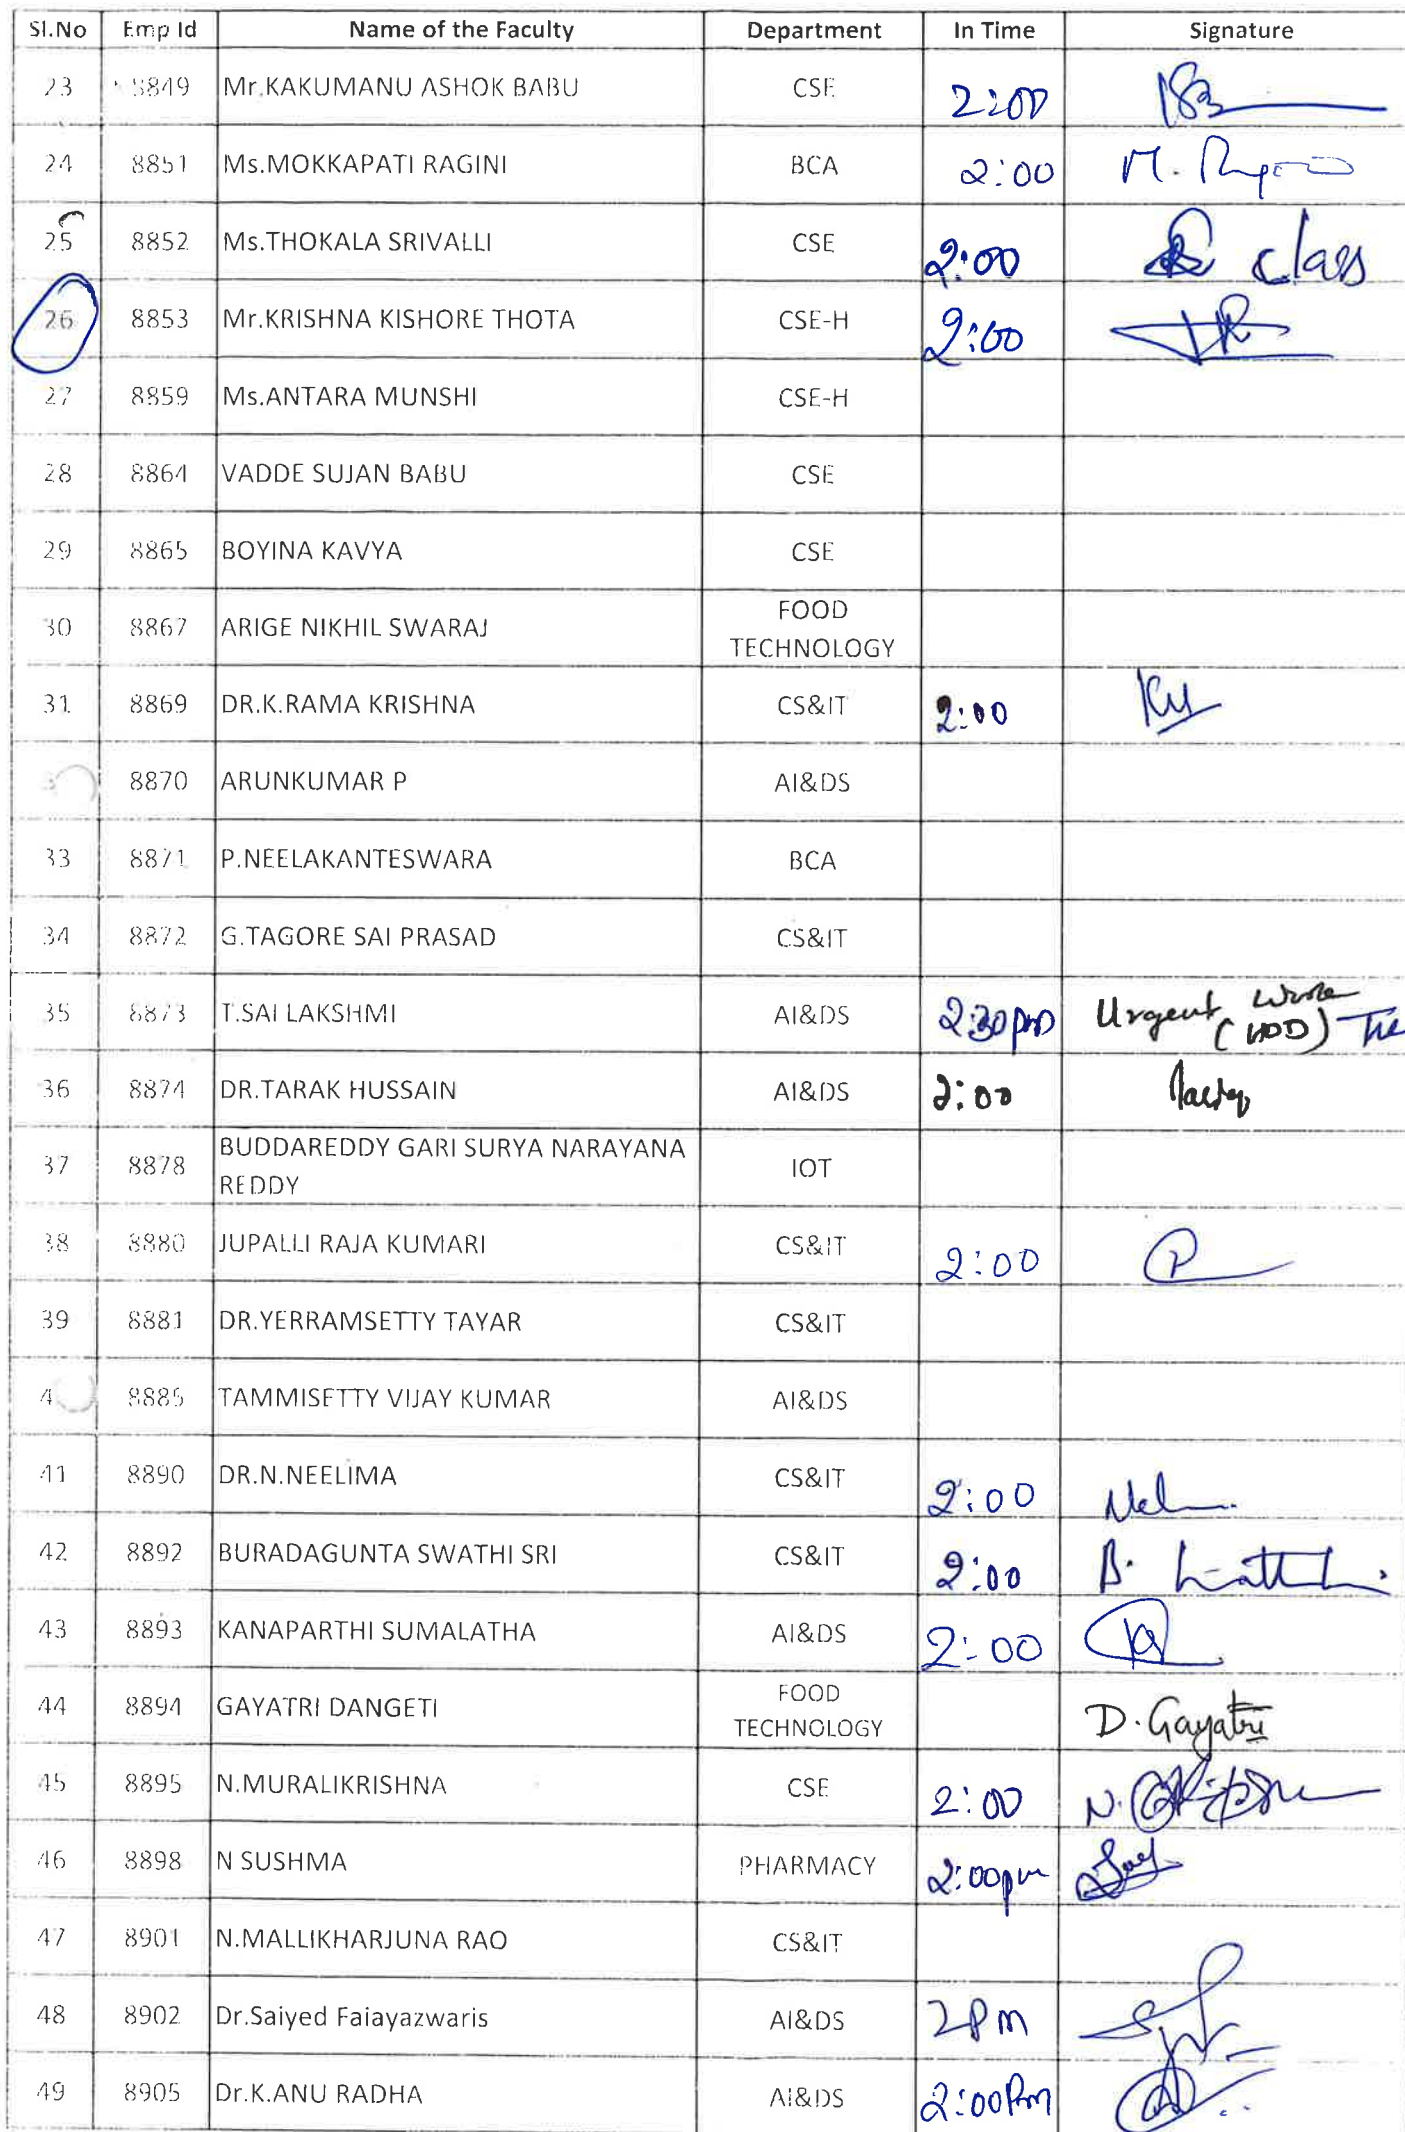 Sl.No Emp Id Name of the Faculty Department In Time Signature
23 8849 Mr.KAKUMANU ASHOK BABU CSE 2:00
24 8851 Ms.MOKKAPATI RAGINI BCA 2:00 M.
25 8852 Ms.THOKALA SRIVALLI CSE 2:00 class
26 8853 Mr.KRISHNA KISHORE THOTA CSE-H 2:00
27 8859 Ms.ANTARA MUNSHI CSE-H
28 8864 VADDE SUJAN BABU CSE
29 8865 BOYINA KAVYA CSE
30 8867 ARIGE NIKHIL SWARAJ FOOD
TECHNOLOGY
31 8869 DR.K.RAMA KRISHNA CS&IT 2:00
8870 ARUNKUMAR P AI&DS
33 8871 P.NEELAKANTESWARA BCA
34 8872 G.TAGORE SAI PRASAD CS&IT
35 8873 T.SAI LAKSHMI AI&DS 2:30 pm Urgent
(HOD)
36 8874 DR.TARAK HUSSAIN AI&DS 2:00
37 8878 BUDDAREDDY GARI SURYA NARAYANA IOT
REDDY
38 8880 JUPALLI RAJA KUMARI CS&IT 2:00
39 8881 DR.YERRAMSETTY TAYAR CS&IT
4 8885 TAMMISETTY VIJAY KUMAR AI&DS
41 8890 DR.N.NEELIMA CS&IT 2:00
42 8892 BURADAGUNTA SWATHI SRI CS&IT 2:00 B.
43 8893 KANAPARTHI SUMALATHA AI&DS 2:00
44 8894 GAYATRI DANGETI FOOD D. Gayatri
TECHNOLOGY
45 8895 N.MURALIKRISHNA CSE 2:00 N.
46 8898 N SUSHMA PHARMACY 2:00pm
47 8901 N.MALLIKHARJUNA RAO CS&IT
48 8902 Dr.Saiyed Faiayazwaris AI&DS 2Pm
49 8905 Dr.K.ANU RADHA AI&DS 2:00Pm